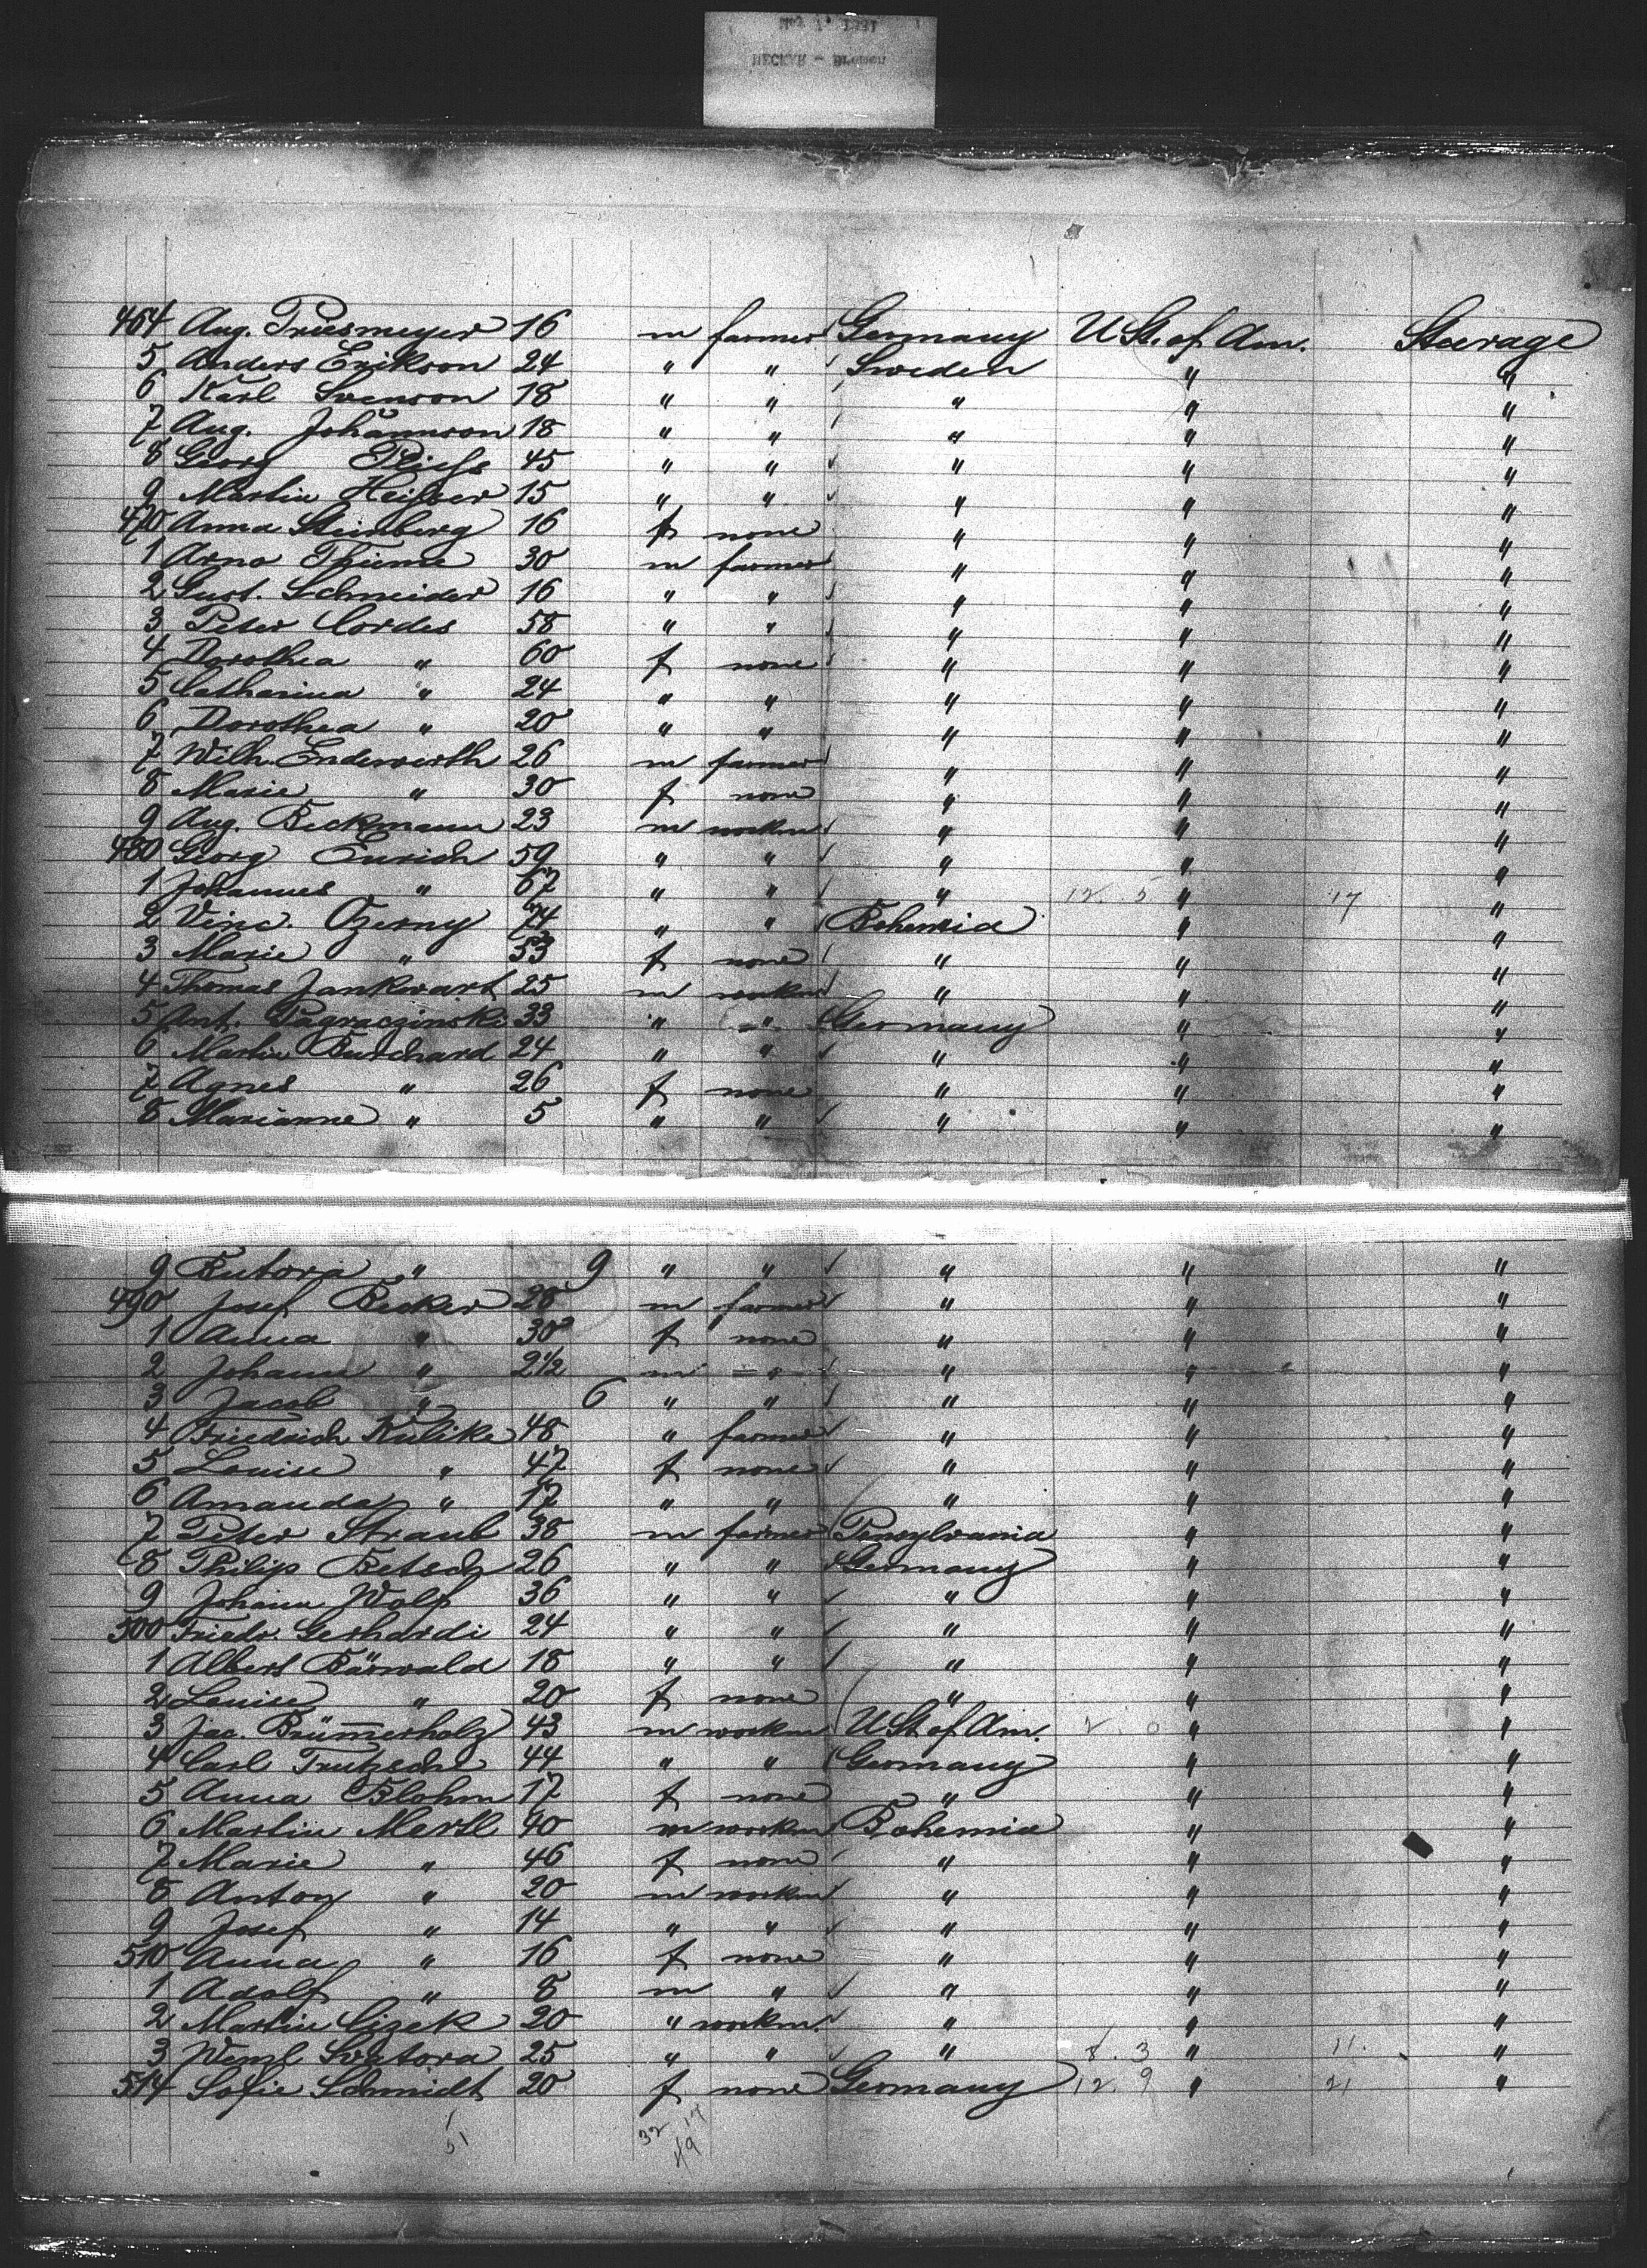 464 Aug. Priesmeyer 16 m farmer Germany U.St. of Am. Steerage
5 Anders Erikson 24 " " Sweden " "
6 Karl Svenson 18 " " " " "
7 Aug. Johannson 18 " " " " "
8 Georg 45 " " " " "
9 Martin 15 " " " " "
470 Anna Steinberg 16 f none " " "
1 Arno Thieme 30 m farmer " " "
2 Gust. Schneider 16 " " " " "
3 Peter Cordes 58 " " " " "
4 Dorothea " 60 f none " " "
5 Catharina " 24 " " " " "
6 Dorothea " 20 " " " " "
7 Wilh. Enderwirth 26 m farmer " " "
8 Marie " 30 f none " " "
9 Aug. Beckmann 23 m workm " " "
480 Georg Eurich 59 " " " " "
1 Johannes " 67 " " " 12. 5 " 17 "
2 Vinc. Czerny 74 " " Bohemia " "
3 Marie " 53 f none " " "
4 Thomas Jankwart 25 m workm " " "
5 Ant. 33 " " Germany " "
6 Martin Burchard 24 " " " " "
7 Agnes " 26 f none " " "
8 Marianne " 5 " " " " "
9 " 9 " " " " "
490 Josef Becker 28 m farmer " " "
1 Anna " 30 f none " " "
2 Johann " 2 1/2 m " " " "
3 Jacob " 6 " " " " "
4 Friedrich Kulike 48 " farmer " " "
5 Louise " 47 f none " " "
6 Amanda " 17 " " " " "
7 Peter Straub 38 m farmer Pensylvania " "
8 Philip Betsch 26 " " Germany " "
9 Johann Wolf 36 " " " " "
500 Friedr. Gerhardi 24 " " " " "
1 Albert Bärwald 18 " " " " "
2 Louise " 20 f none " " "
3 Jac. Brüm̅erholz 43 m workm U.St. of Am. 2. 0 " "
4 Carl Trutzsche 44 " " Germany " "
5 Anna Blohm 17 f none " " "
6 Martin Mertl 40 m workm Bohemia " "
7 Marie " 46 f none " " "
8 Anton " 20 m workm " " "
9 Josef " 14 " " " " "
510 Anna " 16 f none " " "
1 Adolf " 8 m " " " "
2 Martin Cizek 20 " workm. " " "
3 Wenzl Svatora 25 " " " 8. 3 " 11. "
514 Sofie Schmidt 20 f none Germany 12. 9 " 21 "
1 32 17
51 49